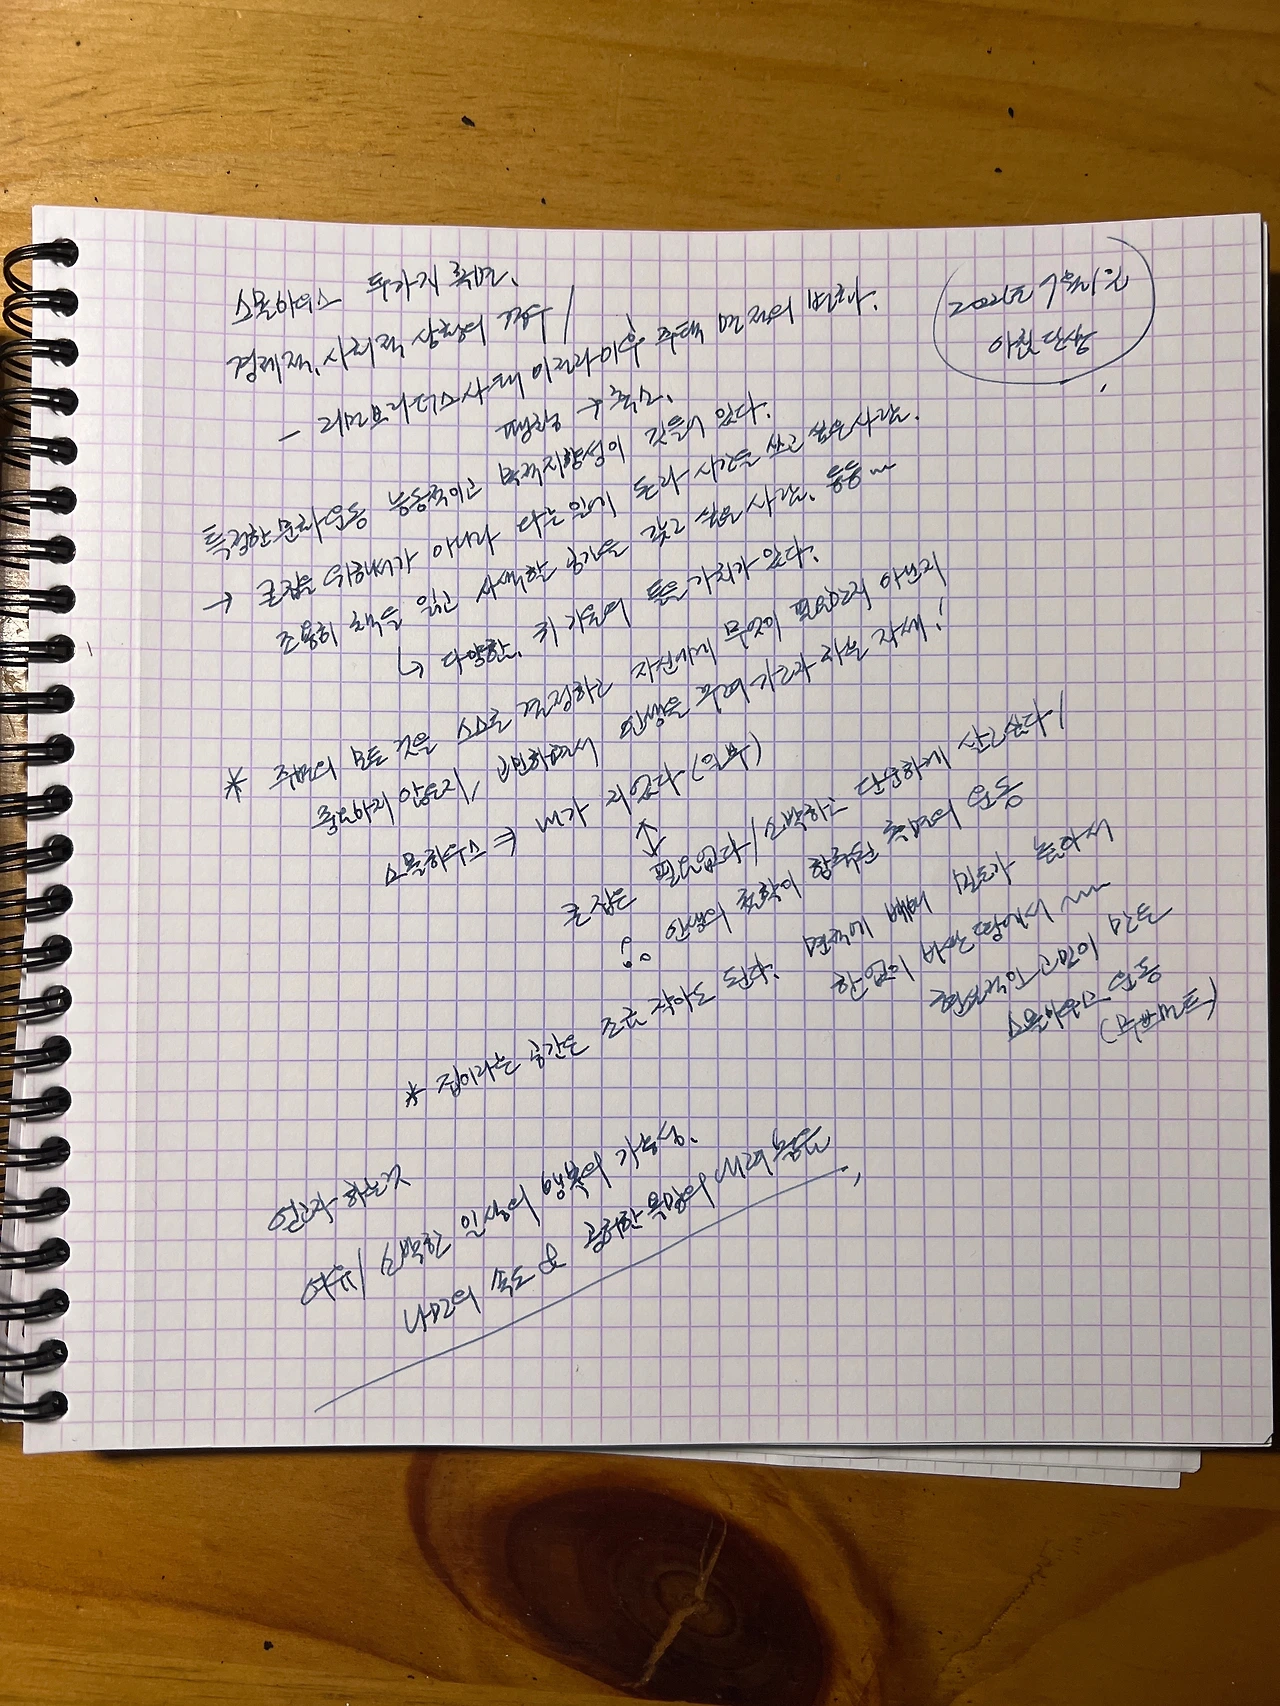 스몰하우스 두가지 측면.
2021년 9월1일
아침 단상
경제적, 사회적 상황의 경우/
- 리먼브라더스사태 이전과 이후 주택 면적의 변화.
팽창 → 축소.
특정한 문화운동 능동적이고 목적지향성이 깃들어 있다.
→ 큰집을 위해서가 아니라 다른일에 돈과 시간을 쓰고 싶은사람.
조용히 책을 읽고 사색할 공간을 갖고 싶은 사람. 등등~
↳ 다양한, 귀 기울여 들을가치가 있다.
* 주변의 모든 것을 스스로 결정하고 자신에게 무엇이 필요하고 아닌지
중요하지 않은지, 고민하면서 인생을 꾸려 가고자 하는 자세!
스몰하우스 ⇒ 내가 지었다 (일부)
↕
큰 집은 필요없다/소박하고 단순하게 살고싶다/
인생의 철학이 함축된 측면의 운동
* 집이라는 공간은 조금 작아도 된다. 면적에 빼해 밀도가 높아서
한없이 바쁜 땅에서 ~
현실적인 고민이 만든
스몰하우스 운동
(무브먼트)
연구자-하는것
여유/ 소박한 일상의 행복의 가능성.
나만의 속도 & 공허한 욕망의 내려놓음